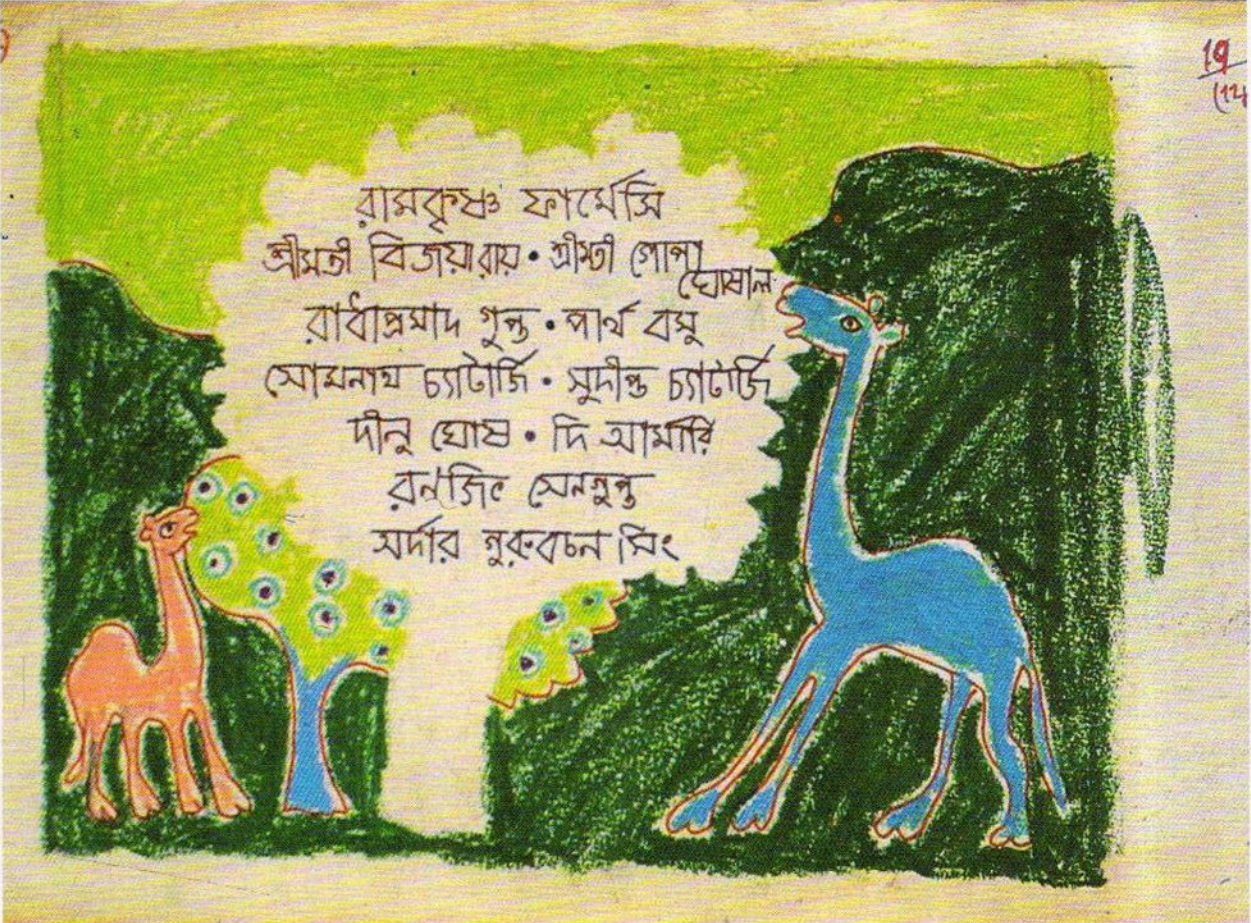 রামকৃষ্ণ ফার্মেসি
শ্রীমতী বিজয়া রায় • শ্রীমতী গোপা
ঘোষাল
রাধাপ্রসাদ গুপ্ত • পার্থ বসু
সোমনাথ চ্যাটার্জি • সুদীপ্ত চ্যাটার্জি
দীনু ঘোষ • দি আর্মারি
রনজিৎ সেনগুপ্ত
সর্দার গুরুবচন সিং